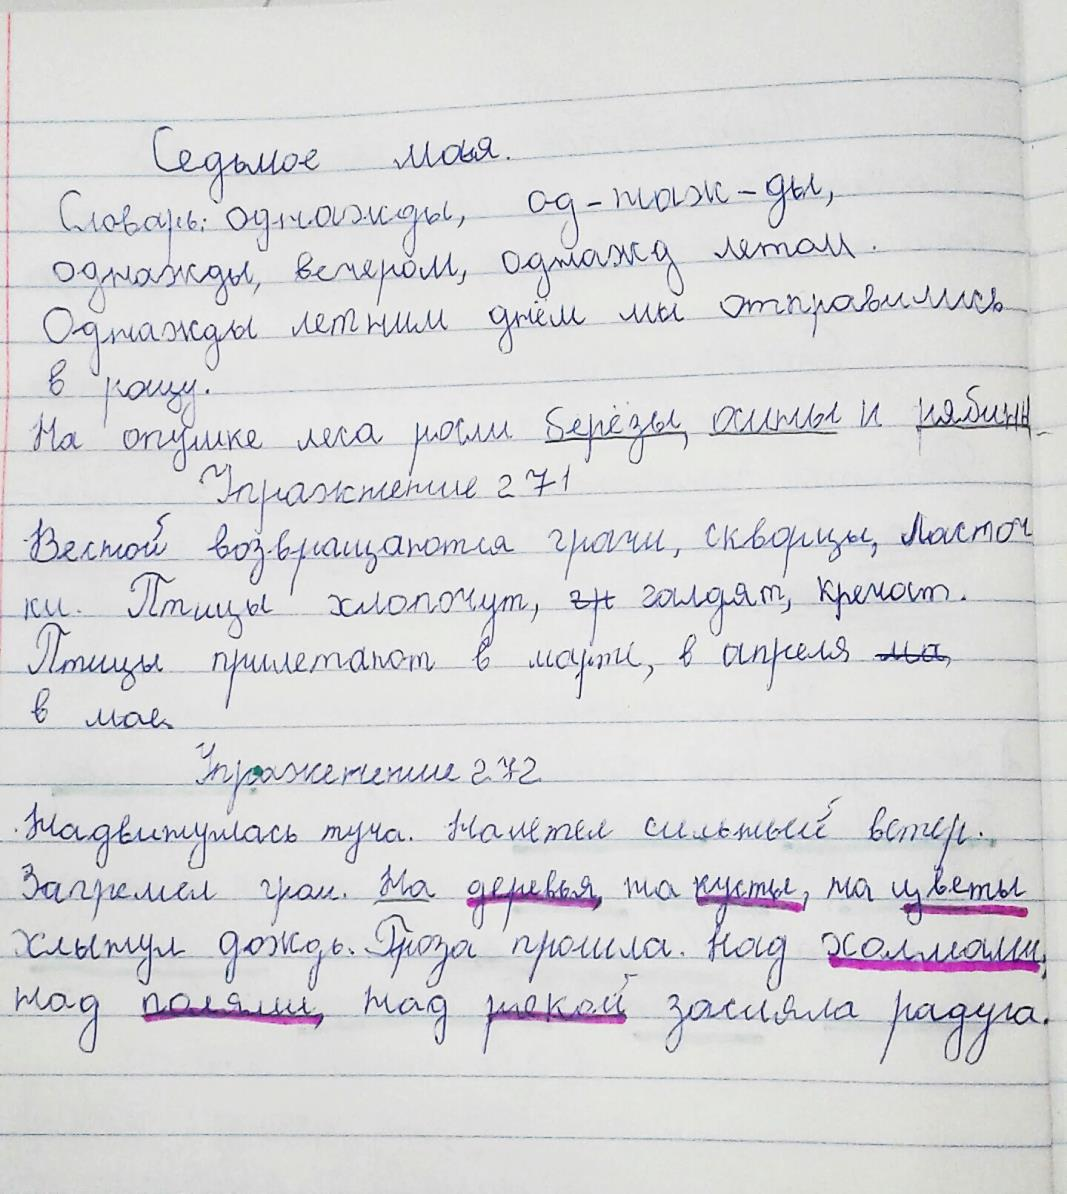 Седьмое мая.
Словарь: однажды, од-наж-ды,
однажды, вечером, однажд летом.
Однажды летним днём мы отправились
в рощу.
На опушке леса росли берёзы, осины и рябины
Упражнение 271
Весной возвращаются грачи, скворцы, ласточ
ки. Птицы хлопочут, галдят, кричат.
Птицы прилетают в марте, в апреля
в мае.
Упражнение 272
Надвинулась туча. Налетел сильный ветер.
Загремел гром. На деревья, на кусты, на цветы
хлынул дождь. Гроза прошла. Над холмами,
над полями, над рекой засияла радуга.